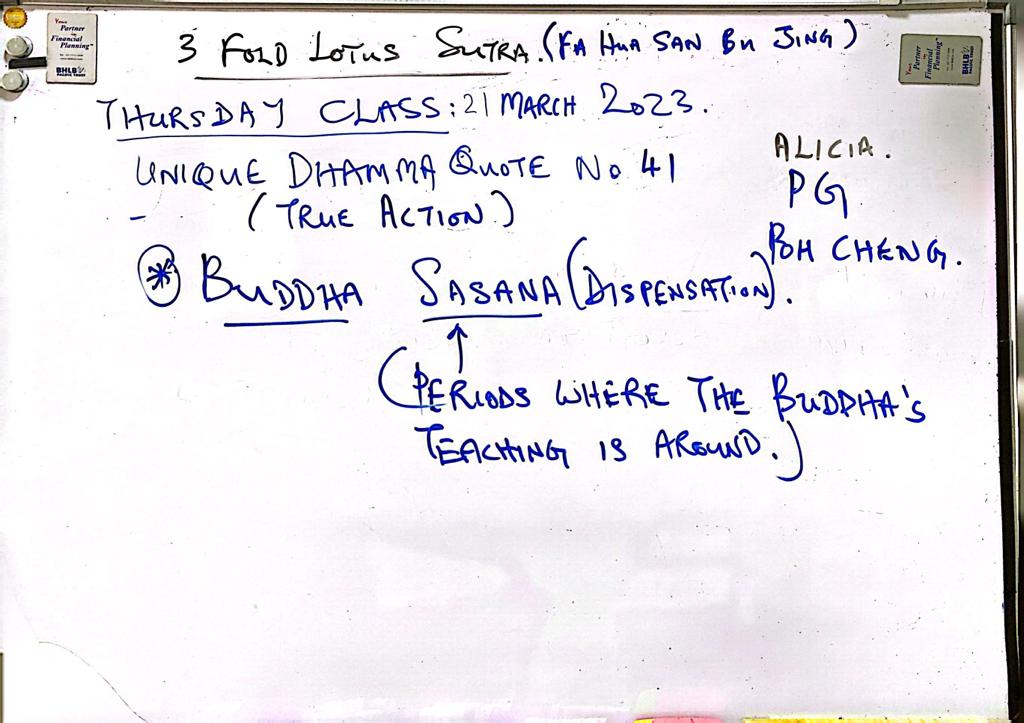 3 FOLD LOTUS SUTRA. (FA HUA SAN BU JING)
THURSDAY CLASS: 21 MARCH 2023.
UNIQUE DHAMMA QUOTE No 41
- (TRUE ACTION)
ALICIA.
PG
POH CHENG.
* BUDDHA SASANA (DISPENSATION).
↑
(PERIODS WHERE THE BUDDHA'S
TEACHING IS AROUND.)
Your
Partner
in
Financial
Planning
BHLB
PACIFIC TRUST
Your
Partner
in
Financial
Planning
BHLB